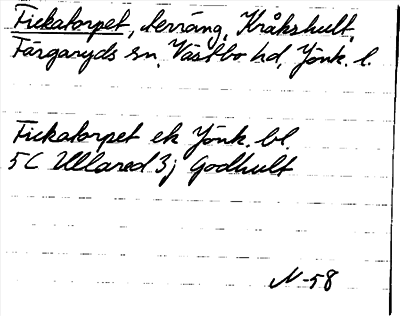 Fickatorpet, terräng, Kråkshult,
Färgaryds sn, Västbo hd, Jönk. l.
Fickatorpet ek Jönk. bl.
5C Ullared 3j Godhult
N-58